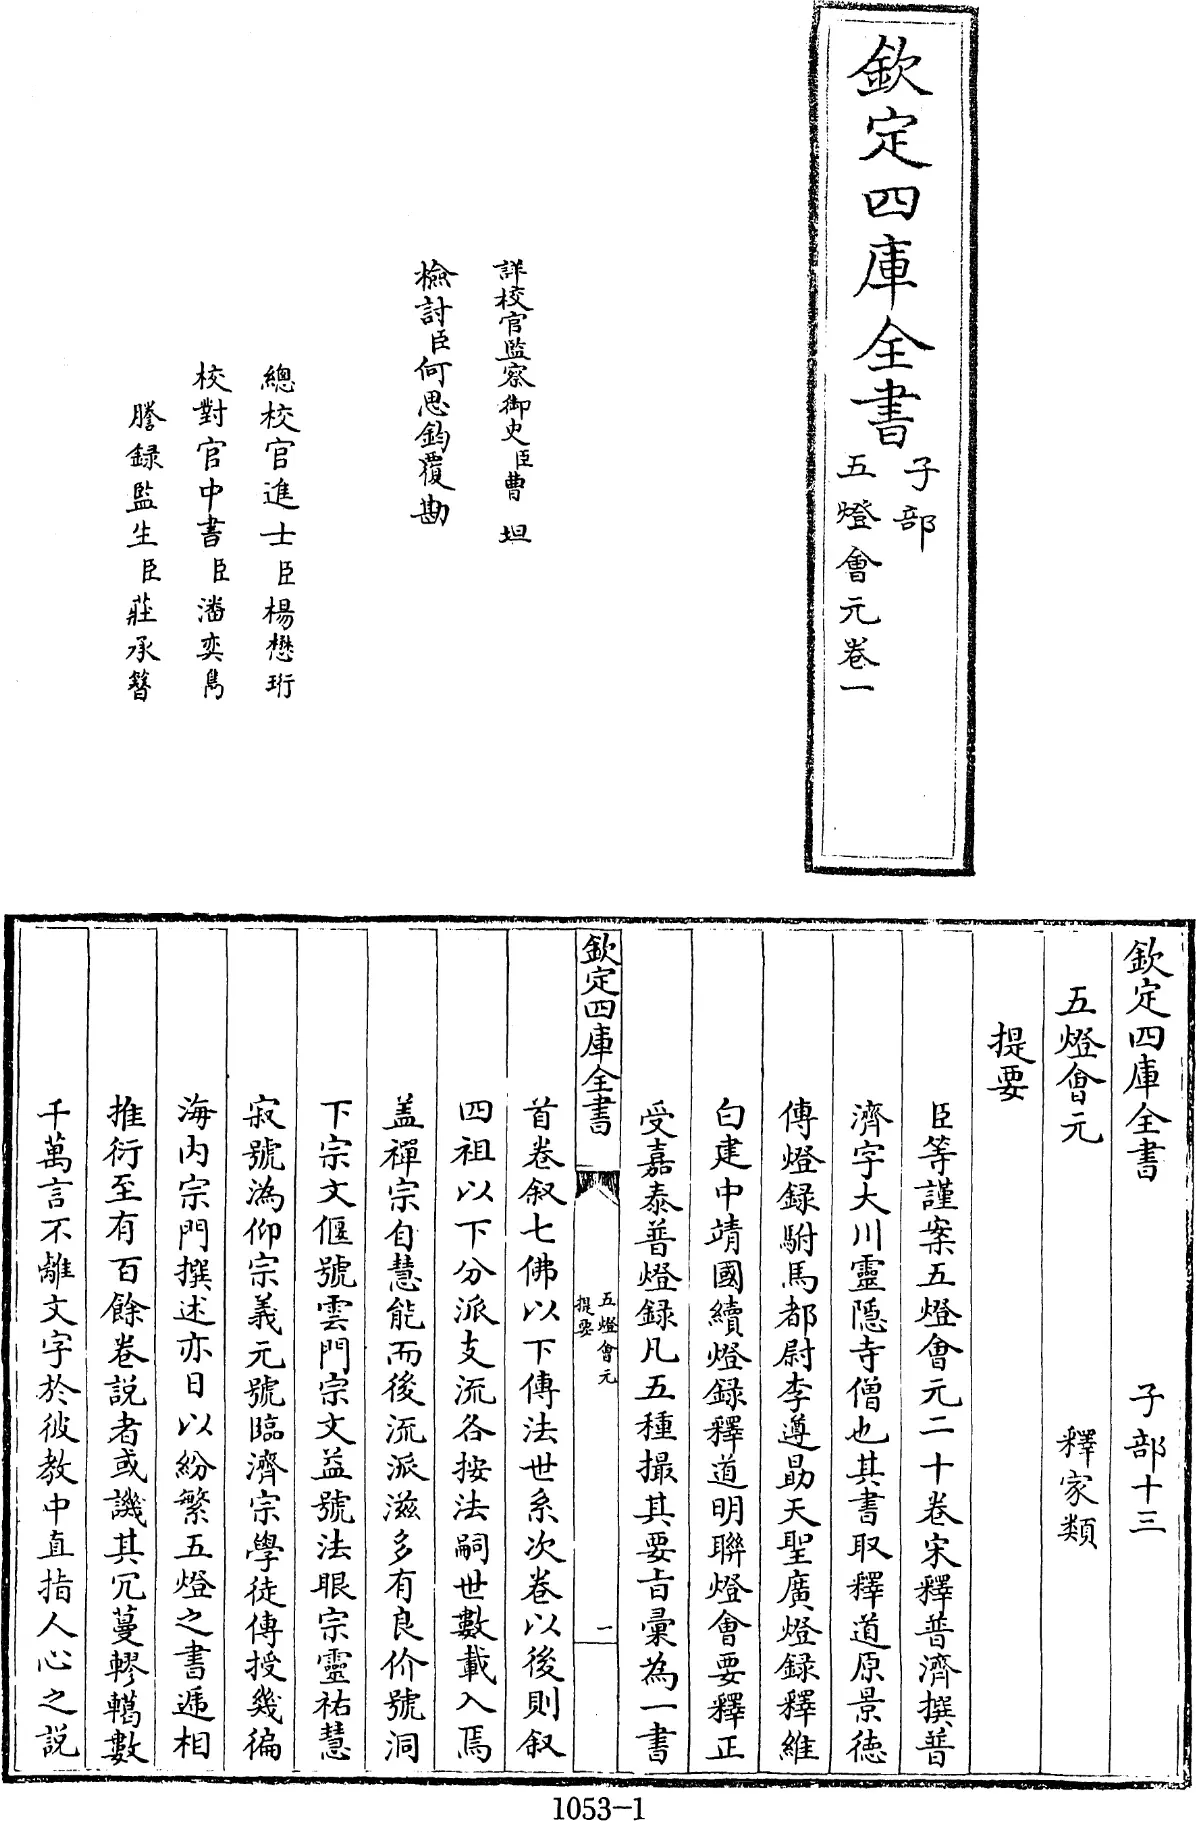 欽定四庫全書
子部
五燈會元卷一
詳校官監察御史臣曹坦
檢討臣何思鈞覆勘
總校官進士臣楊懋珩
校對官中書臣潘奕雋
謄録監生臣莊承簪
欽定四庫全書 子部十三
五燈會元 釋家類
提要
臣等謹案五燈會元二十卷宋釋普濟撰普
濟字大川靈隱寺僧也其書取釋道原景徳
傳燈録駙馬都尉李遵勗天聖廣燈録釋維
白建中靖國續燈録釋道明聯燈會要釋正
受嘉泰普燈録凡五種撮其要旨彚為一書
欽定四庫全書
五燈會元
提要
一
首卷叙七佛以下傳法世系次卷以後則叙
四祖以下分派支流各按法嗣世數載入焉
盖禪宗自慧能而後流派滋多有良价號洞
下宗文偃號雲門宗文益號法眼宗靈祐慧
寂號溈仰宗義元號臨濟宗學徒傳授幾徧
海内宗門撰述亦日以紛繁五燈之書遞相
推衍至有百餘卷説者或譏其冗蔓轇轕數
千萬言不離文字於彼教中直指人心之説
1053-1